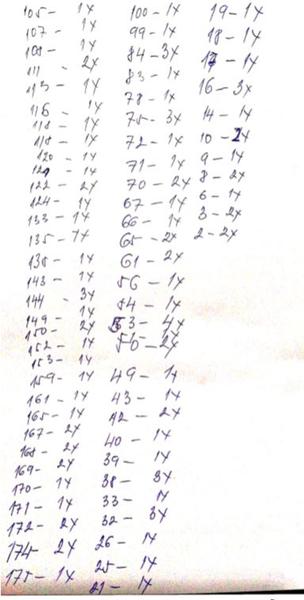 105 - 1x
107 - 1x
108 - 1x
111 - 2x
113 - 1x
116 1x
118 - 1x
119 - 1x
120 - 1x
121 - 1x
122 - 2x
124 - 1x
133 - 1x
135 - 1x
138 - 1x
143 - 1x
144 - 3x
149 - 1x
150 - 2x
152 - 1x
153 - 1x
159 - 1x
161 - 1x
165 - 1x
167 - 2x
168 - 2x
169 - 2x
170 - 1x
171 - 1x
172 - 2x
174 - 2x
175 - 1x
100 - 1x
99 - 1x
84 - 3x
83 - 1x
78 - 1x
75 - 3x
72 - 1x
71 - 1x
70 - 2x
67 - 1x
66 - 1x
65 - 2x
61 - 2x
56 - 1x
54 - 1x
53 - 4x
50 - 2x
49 - 1x
43 - 1x
42 - 2x
40 - 1x
39 - 1x
38 - 3x
33 - 1x
32 - 3x
26 - 1x
25 - 1x
21 - 1x
19 - 1x
18 - 1x
17 - 1x
16 - 3x
14 - 1x
10 - 2x
9 - 1x
8 - 2x
6 - 1x
3 - 2x
2 - 2x